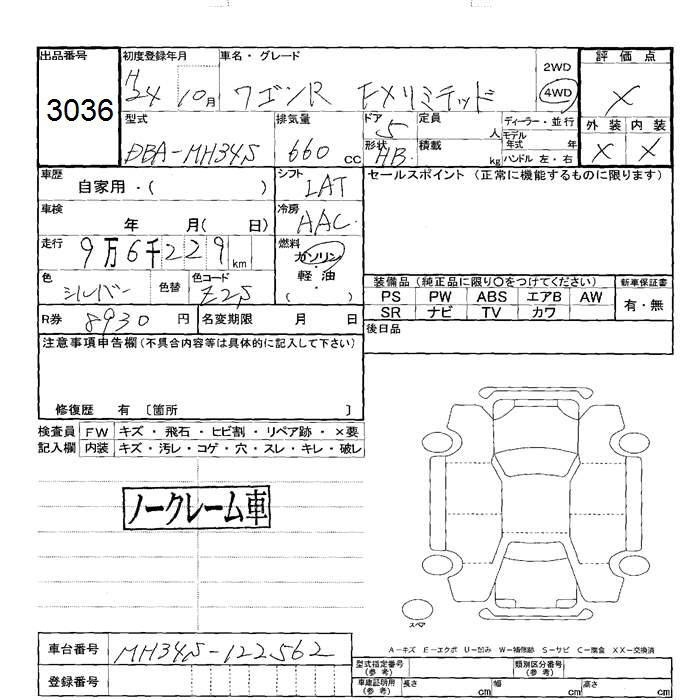 出品番号 初度登録年月 車名・グレード 2WD 評価点
3036 H24 10月 ワゴンR FXリミテッド 4WD X
型式 排気量 ドア 定員 ディーラー・並行 外装 内装
5 人 モデル年式 年
DBA-MH34S 660cc 形状 HB 積載 kg ハンドル 左・右 X X
車歴 自家用・( ) シフト IAT セールスポイント (正常に機能するものに限ります)
車検 年 月( 日) 冷房 AAC
走行 9万6千229km 燃料 ガソリン・軽油・( )
色 シルバー 色替 色コード Z2S 装備品 (純正品に限り○をつけてください) 新車保証書
PS PW ABS エアB AW 有・無
R券 8930円 名変期限 月 日 SR ナビ TV カワ
注意事項申告欄(不具合内容等は具体的に記入して下さい) 後日品
修復歴 有 〔箇所 〕
検査員 FW キズ・飛石・ヒビ割・リペア跡・×要
記入欄 内装 キズ・汚レ・コゲ・穴・スレ・キレ・破レ
ノークレーム車
スペア
A-キズ E-エクボ U-凹み W-補修跡 S-サビ C-腐食 XX-交換済
車台番号 MH34S-122562 型式指定番号(参考) 類別区分番号(参考)
登録番号 車庫証明用(参考) 長さ cm 幅 cm 高さ cm